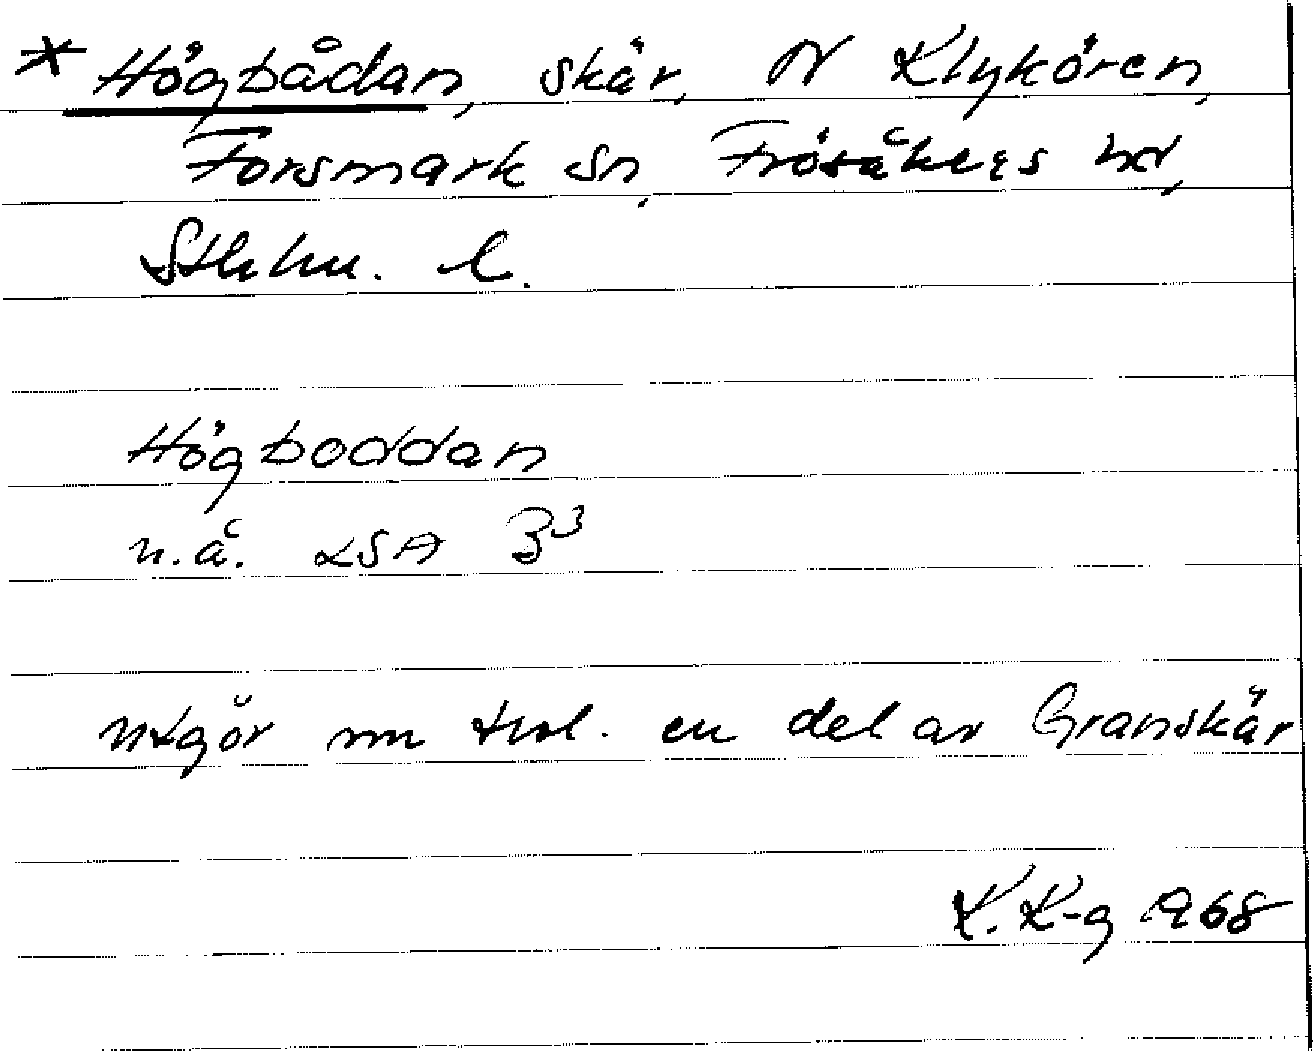 * Högbådan, skär, N Klykören,
Forsmark sn, Frösåkers hd,
Sthlm. l.
Högboddan
u.å. LSA B3
utgör nu trol. en del av Granskär
K. K-g 1968